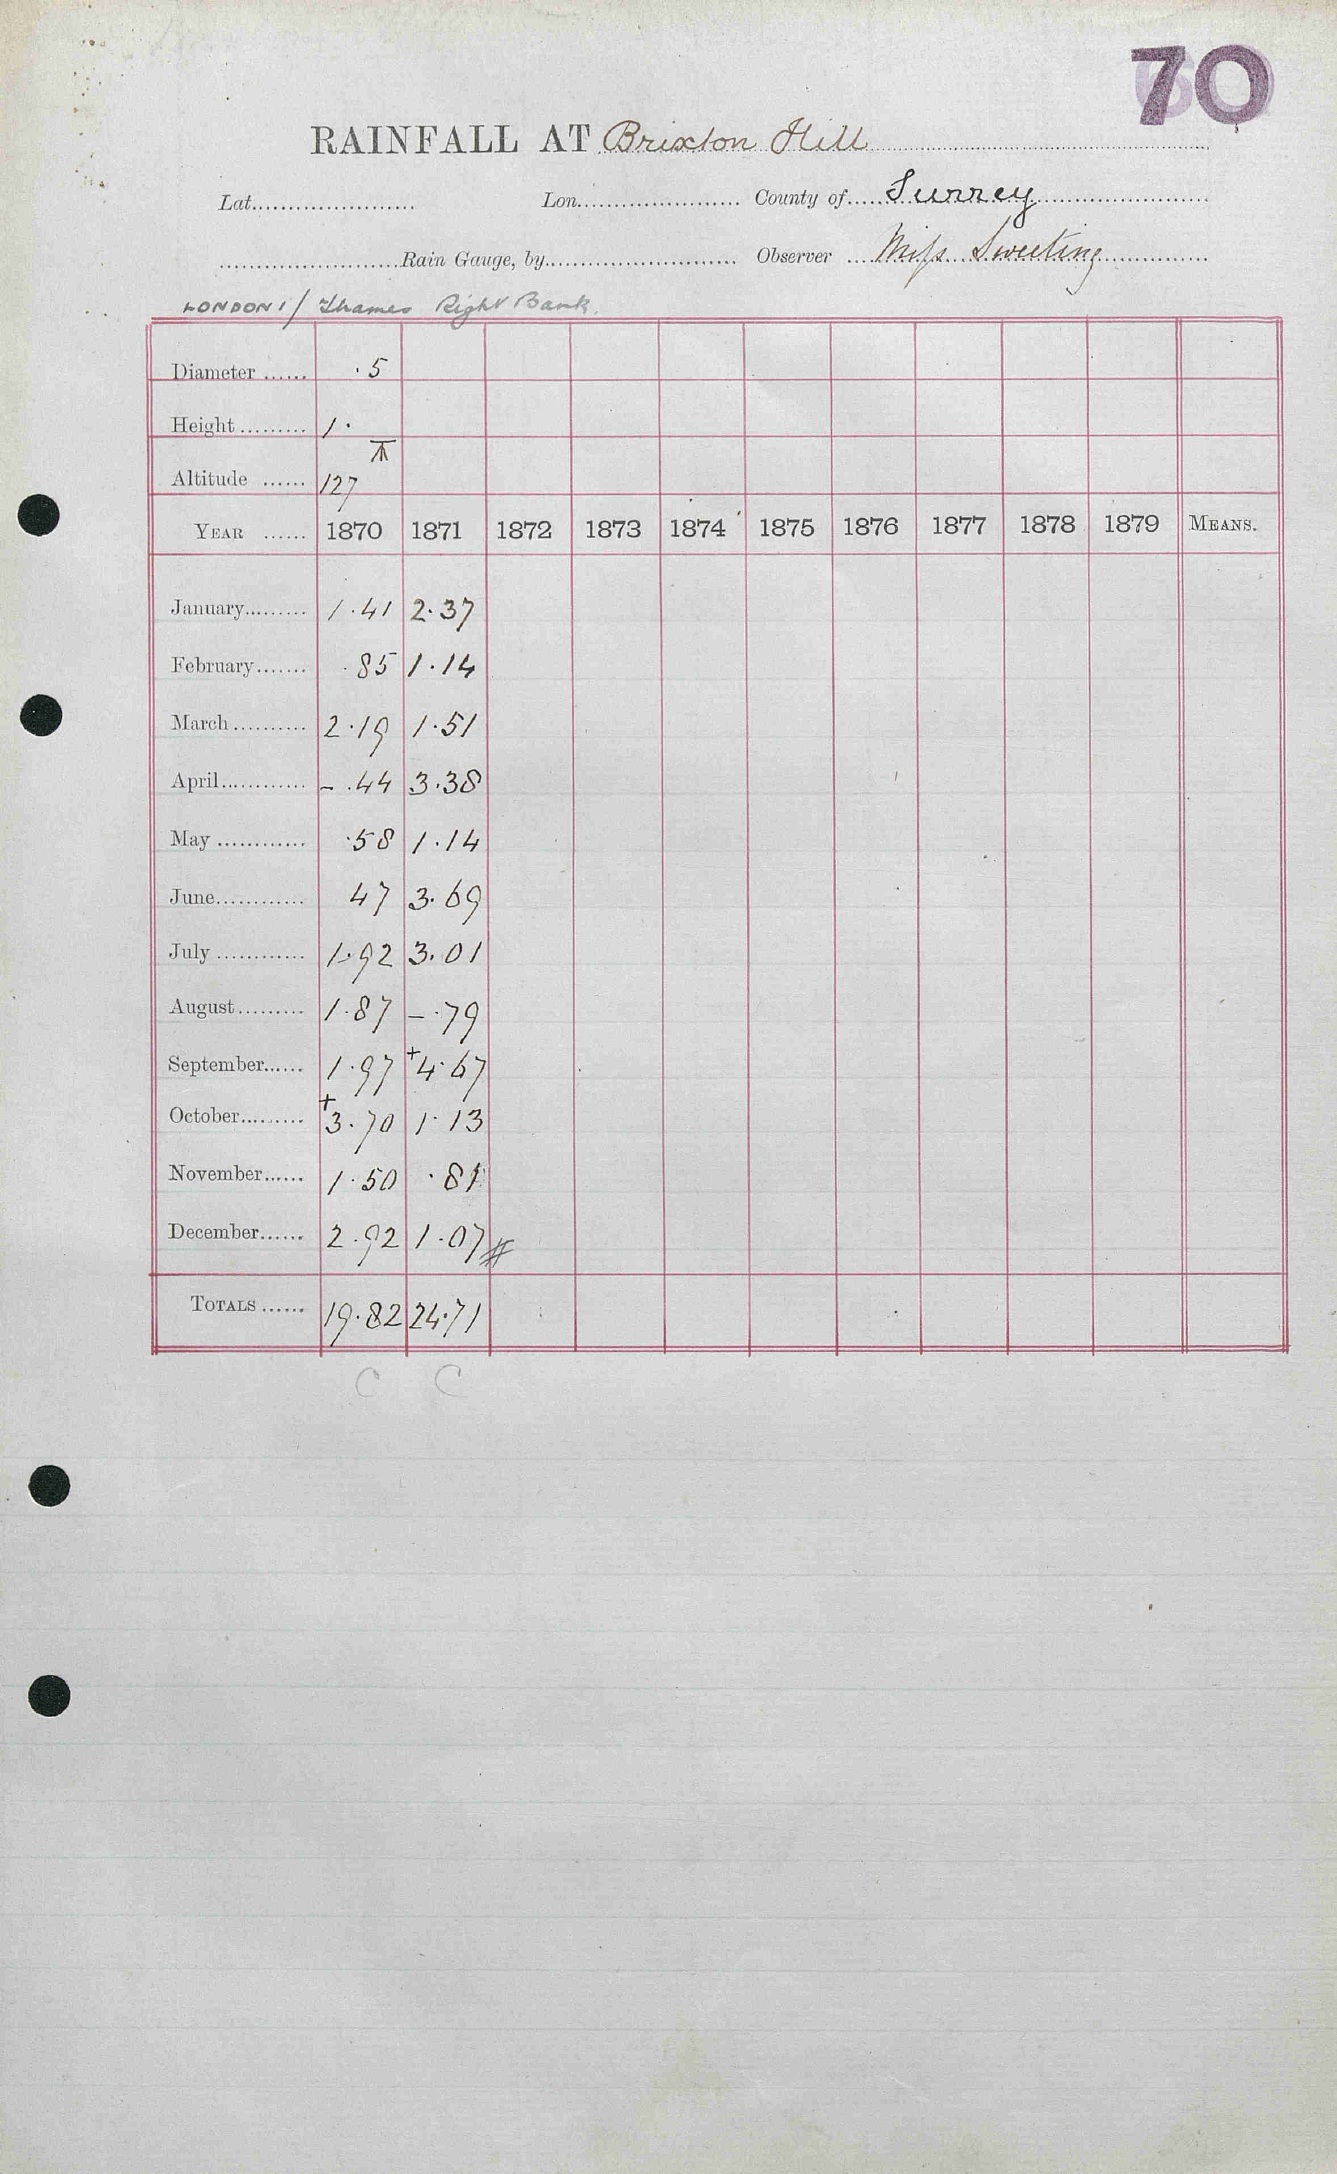 70
RAINFALL AT Brixton Hill
Lat...................... Lon...................... County of..... Surrey
.........................Rain Gauge, by.......................... Observer .... Miss Sweeting
LONDON 1/ Thames Right Bank.
Diameter ...... .5
Height ......... 1.
Altitude ...... 127
YEAR ...... 1870 1871 1872 1873 1874 1875 1876 1877 1878 1879 MEANS.
January......... 1.41 2.37
February....... .85 1.14
March .......... 2.19 1.51
April............ - .44 3.38
May ............ .58 1.14
June............ 47 3.69
July ............ 1.92 3.01
August......... 1.87 - .79
September...... 1.97 +4.67
October......... +3.70 1.13
November...... 1.50 .81
December...... 2.92 1.07 #
TOTALS ...... 19.82 24.71
C C